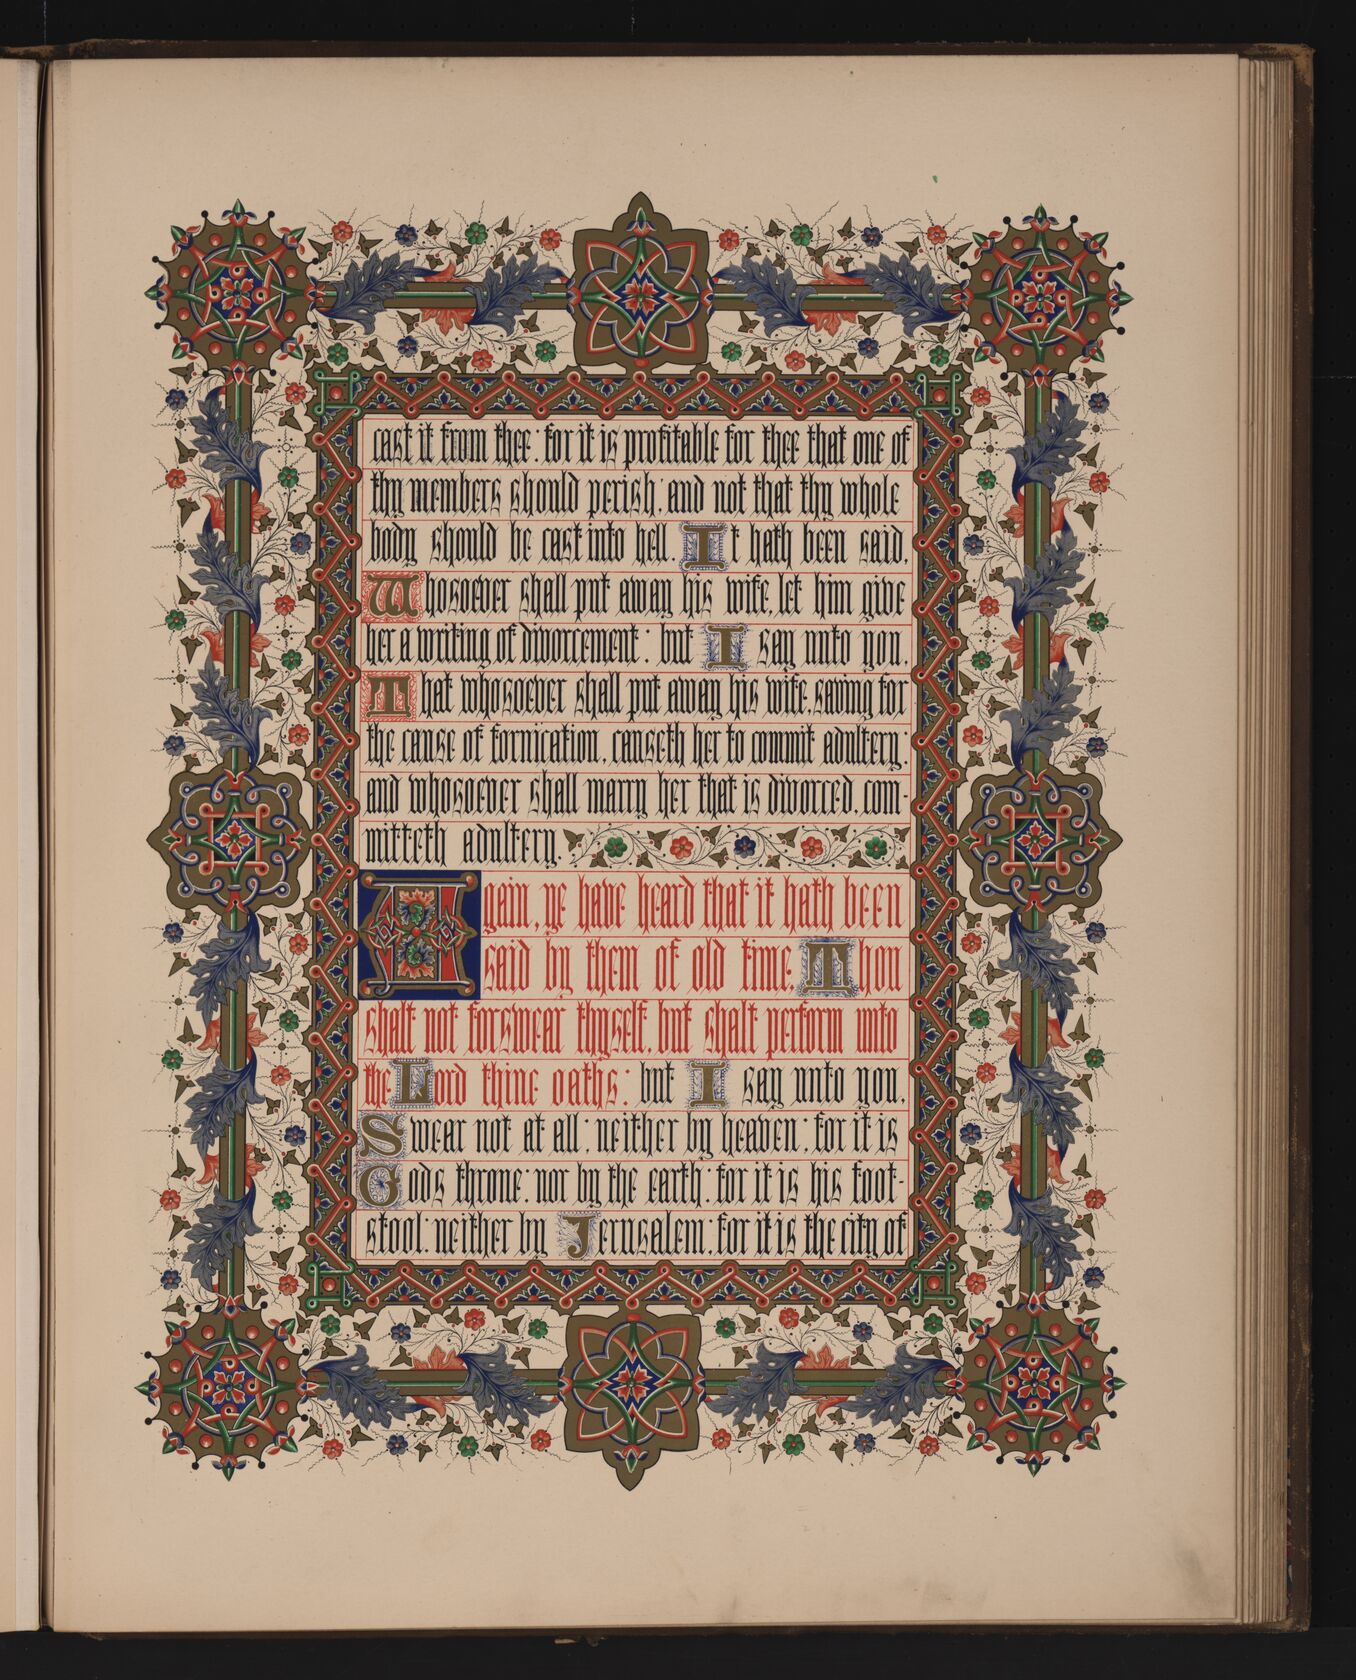 cast it from thee: for it is profitable for thee that one of
thy members should perish, and not that thy whole
body should be cast into hell. It hath been said,
Whosoever shall put away his wife, let him give
her a writing of divorcement: but I say unto you,
That whosoever shall put away his wife, saving for
the cause of fornication, causeth her to commit adultery:
and whosoever shall marry her that is divorced, com-
mitteth adultery.
Again, ye have heard that it hath been
said by them of old time, Thou
shalt not forswear thyself, but shalt perform unto
the Lord thine oaths: but I say unto you,
Swear not at all; neither by heaven; for it is
Gods throne: nor by the earth; for it is his foot-
stool: neither by Jerusalem; for it is the city of